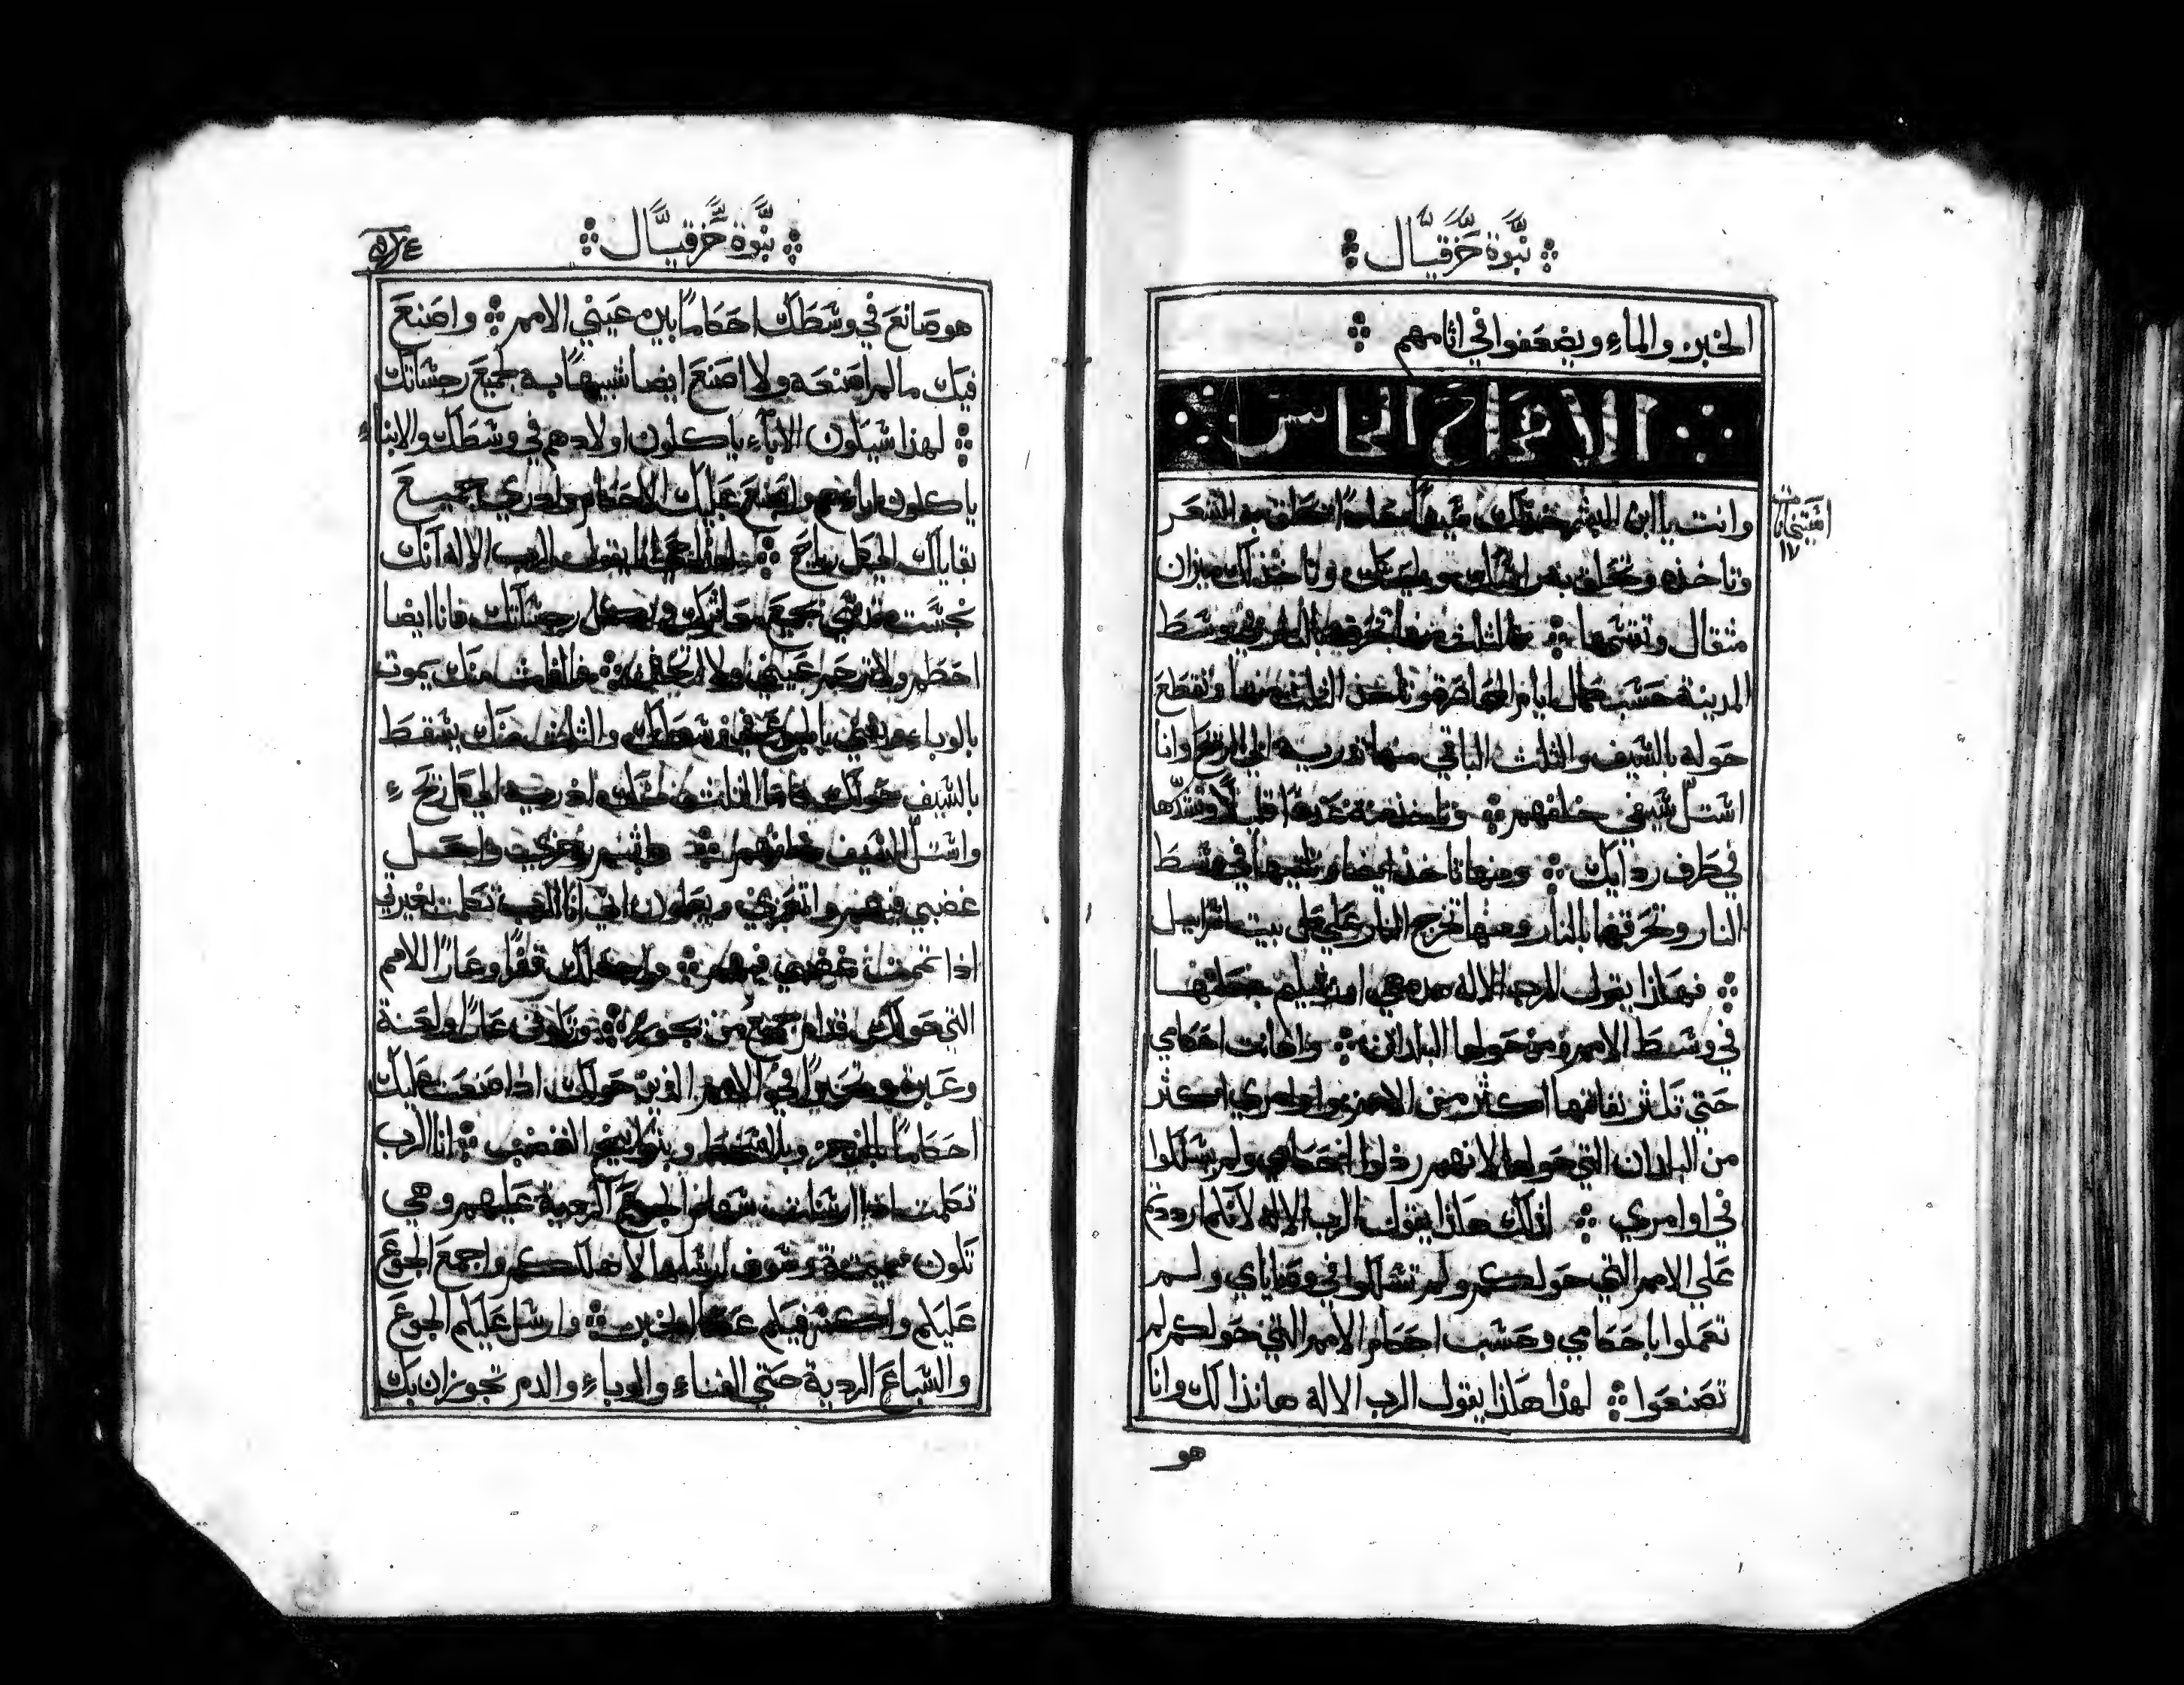 نبوة حزقيال
الخبز والماء ويضعفوا في اثامهم
الاصحاح الخامس
وانت يا ابن البشر خذ لك سيفا تحلق به الشعر
وتاخذه وتحلق به راسك ولحيتك وتاخذ لك ميزان
مثقال وتقسمها فالثلث منها تحرقه بالنار في وسط
المدينة حسب كمال ايام المحاصرة وتاخذ الثلث منها وتقطع
حوله بالسيف والثلث الباقي منها تدريه الي الريح وانا
استل سيفي خلفهم وتاخذ منه عددًا قليلًا وتشدها
في طرف ردايك ومنها تاخذ ايضا وتلقيها في وسط
النار وتحرقها بالنار ومنها تخرج النار علي كل بيت اسراييل
فهكذا يقول الرب الاله هذه هي اورشليم جعلتها
في وسط الامم ومن حولها البلدان واهانت احكامي
حتي تكثر نفاقها اكثر من الامم واوامري اكثر
من البلدان التي حولها لانهم رذلوا احكامي ولم يسلكوا
في اوامري لذلك هكذا يقول الرب الاله لانكم ازددتم
علي الامم التي حولكم ولم تسلكوا في وصاياي ولم
تعملوا باحكامي وحسب احكام الامم التي حولكم لم
تصنعوا لهذا هكذا يقول الرب الاله هانذا لك وانا
هو
نبوة حزقيال
هو صانع في وسطك احكامًا بين عيني الامم واصنع
فيك ما لم اصنعه ولا اصنع ايضا شبيهًا به لجميع رجساتك
لهذا سيكون الاباء ياكلون اولادهم في وسطك والابناء
ياكلون اباءهم واصنع عليك الاحكام واذري جميع
بقاياك لكل رياح لهذا حي انا يقول الرب الاله انك
نجست مقدسي بجميع معاثرك وبكل رجساتك فانا ايضا
احطم ولا ترحم عيني ولا اتحنن فالثلث منك يموت
بالوباء ويفني بالجوع في وسطك والثلث منك يسقط
بالسيف حولك فاما الثلث منك اذريه الي كل ريح
واستل السيف خلفهم واتمم رجزي واجعل
غضبي فيهم واتعزي ويعلمون اني انا الرب تكلمت بغيرتي
اذا تممت غضبي فيهم واجعلك قفرًا وعارًا للامم
التي حولك قدام جميع من يجوز وتكوني عارًا ولعنة
وعبرة وخزيًا في الامم الذين حولك اذا صنعت عليك
احكامًا بالرجز وبالسخط وبتوابيخ الغضب انا الرب
تكلمت اذا ارسلت سهام الجوع الردية عليهم وهي
تكون مميتة وسوف ارسلها لاهلككم واجمع الجوع
عليكم واكسر فيكم عصا الخبز وارسل عليكم الجوع
والسباع الردية حتي الفناء والوباء والدم تجوزان بك